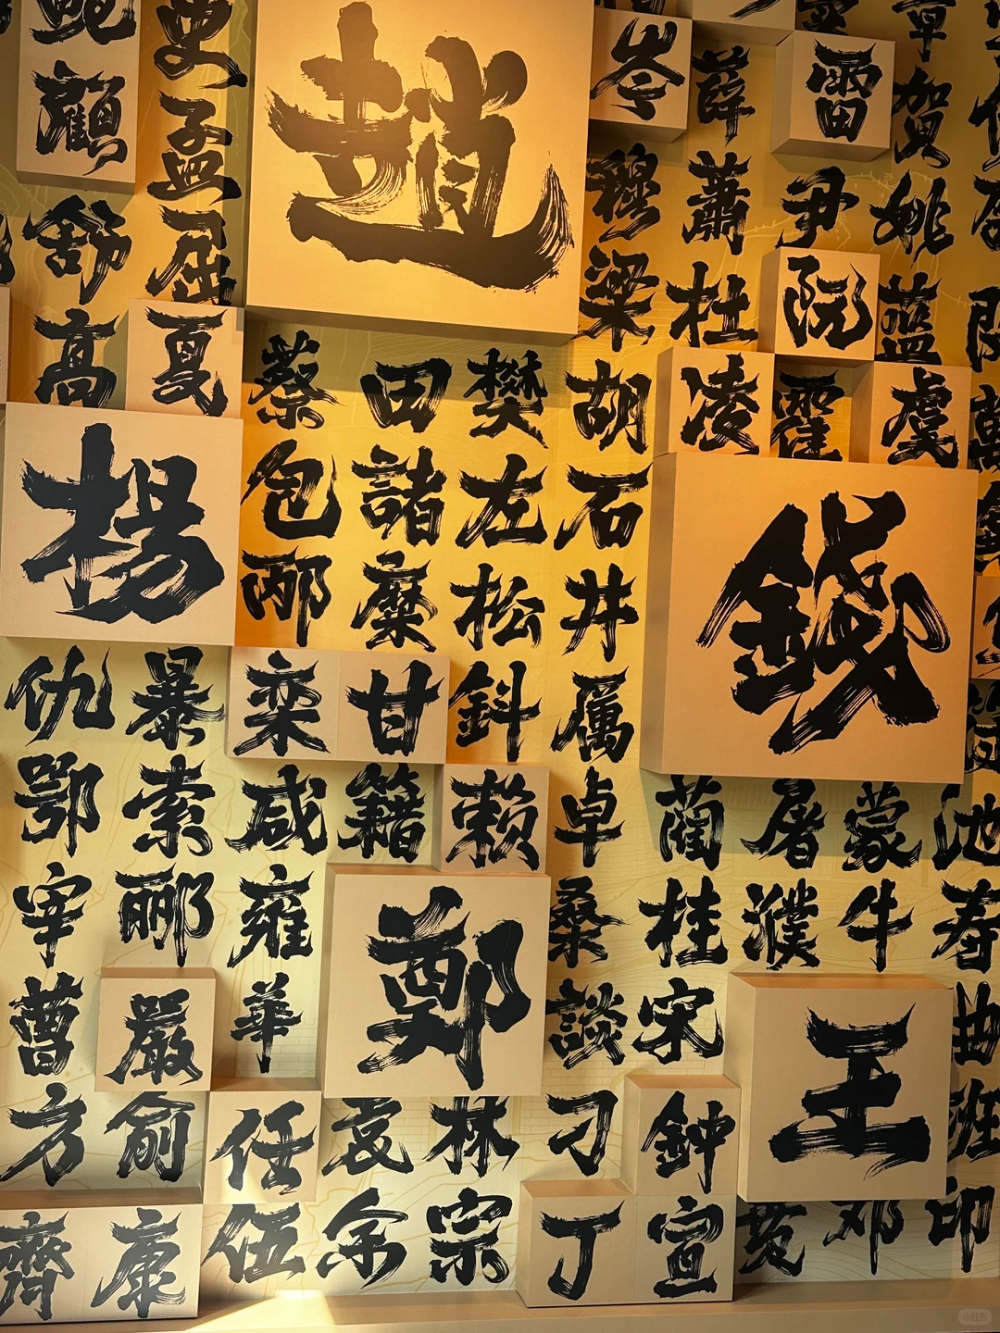 鮑 史
顧 孟 趙 岑 薛 雷 賀
舒 屈 穆 蕭 尹 姚
高 夏 梁 杜 阮 藍
蔡 田 樊 胡 凌 霍 虞
楊 包 諸 左 石 錢
邴 糜 松 井
仇 暴 栾 甘 鈄 厲
鄂 索 咸 籍 賴 卓 藺 屠 蒙 池
宰 酈 雍 鄭 桑 桂 濮 牛 寿
曹 嚴 華 談 宋 王 曲
方 俞 任 袁 林 刁 鈡 班
齊 康 伍 余 宗 丁 宣 邓 印